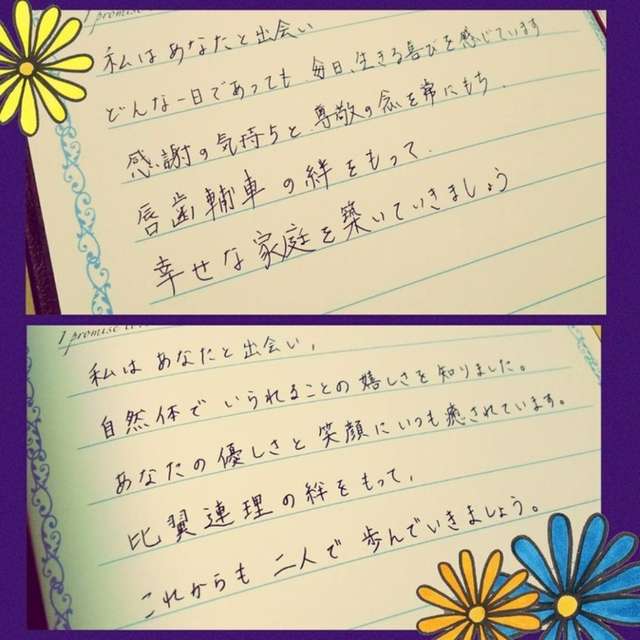 私はあなたと出会い
どんな一日であっても、毎日、生きる喜びを感じています
感謝の気持ちと、尊敬の念を常にもち、
唇歯輔車の絆をもって、
幸せな家庭を築いていきましょう
I promise
私はあなたと出会い、
自然体でいられることの嬉しさを知りました。
あなたの優しさと笑顔にいつも癒されています。
比翼連理の絆をもって、
これからも二人で歩んでいきましょう。